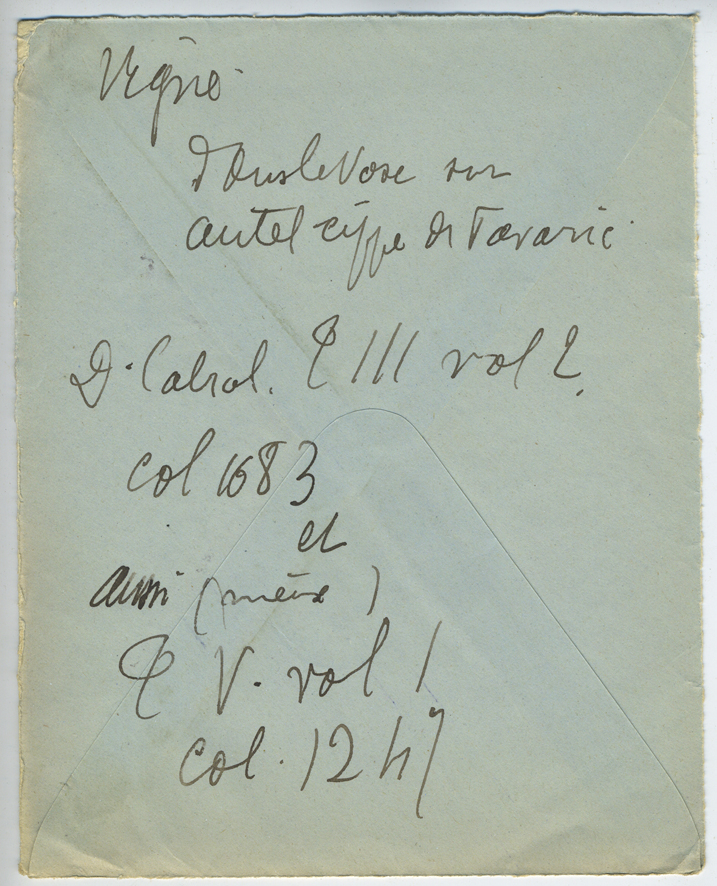 Vigne
dans le Vase sur
autel cippe de Tavaric
D. Cabrol. T III vol 2,
col 1683
et
aussi (même )
T V. vol 1
col. 1247